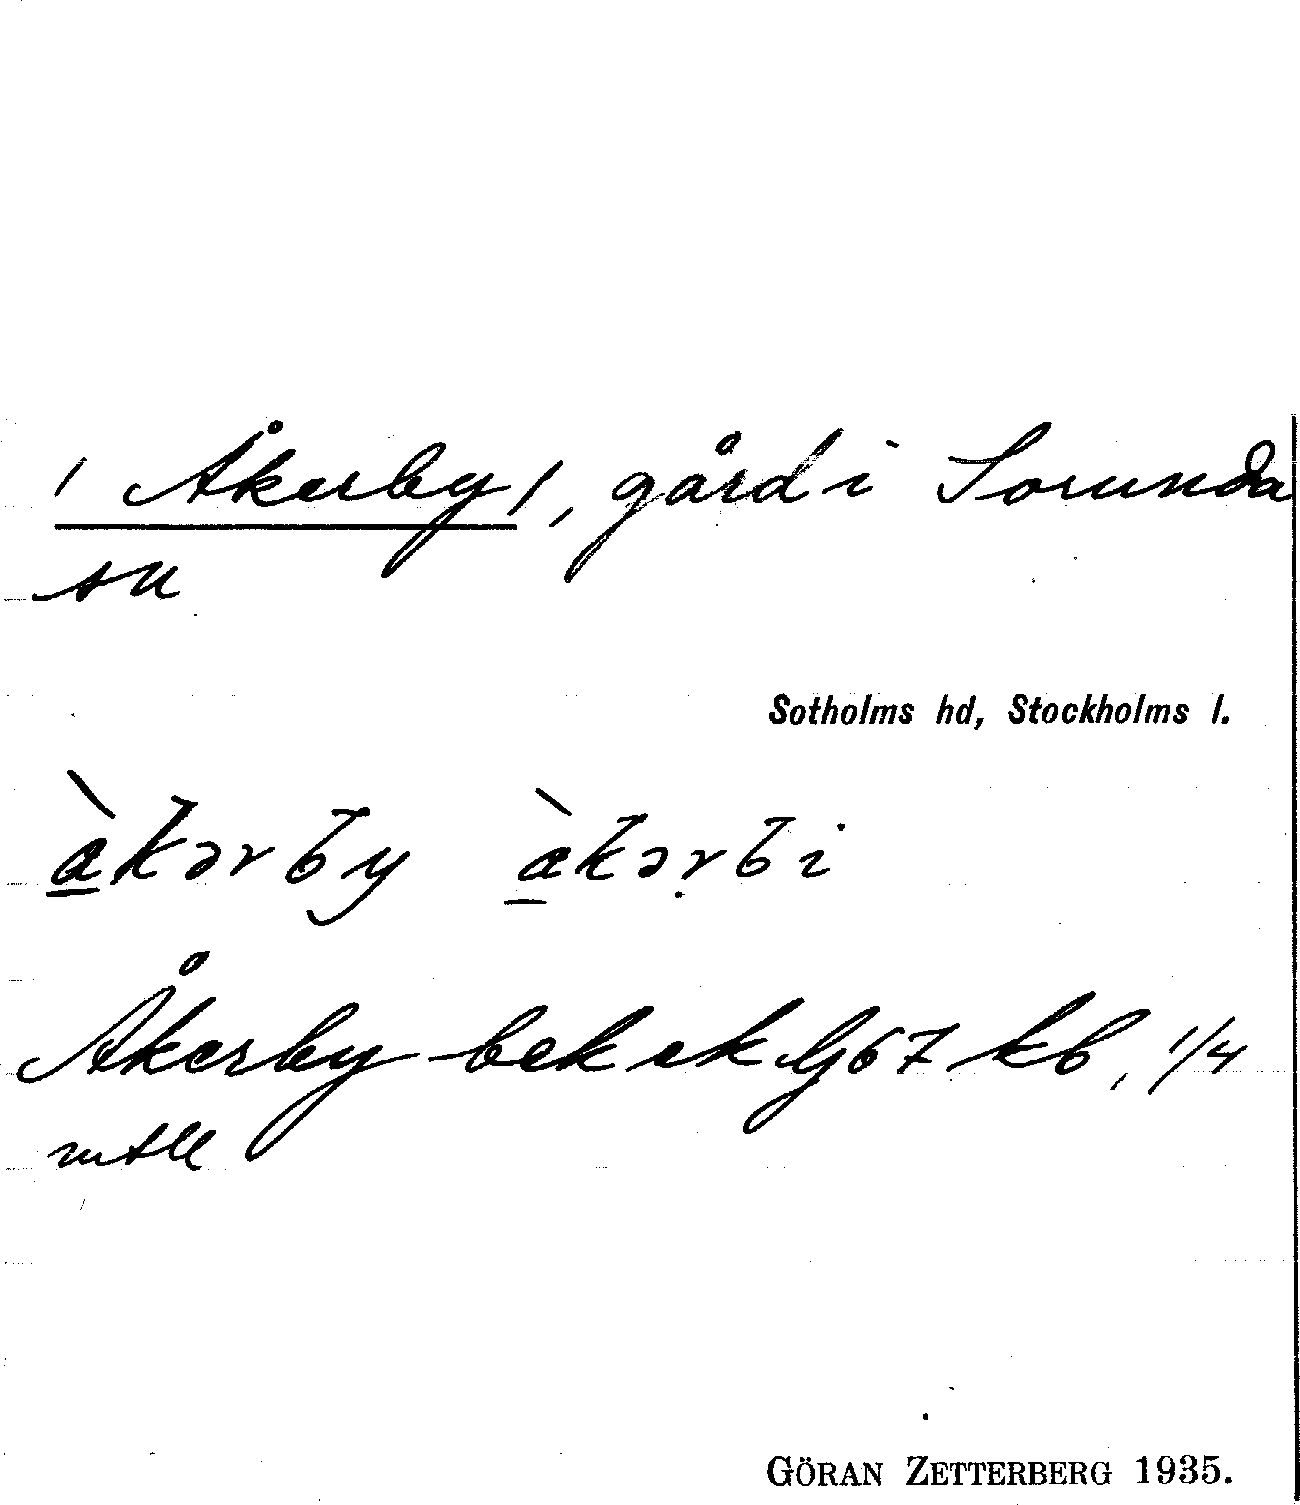 / Åkerby /, gård i Sorunda
sn
Sotholms hd, Stockholms l.
àkərby àkərbi
Åkerby bek ek G67 kb, 1/4
mtll
GÖRAN ZETTERBERG 1935.